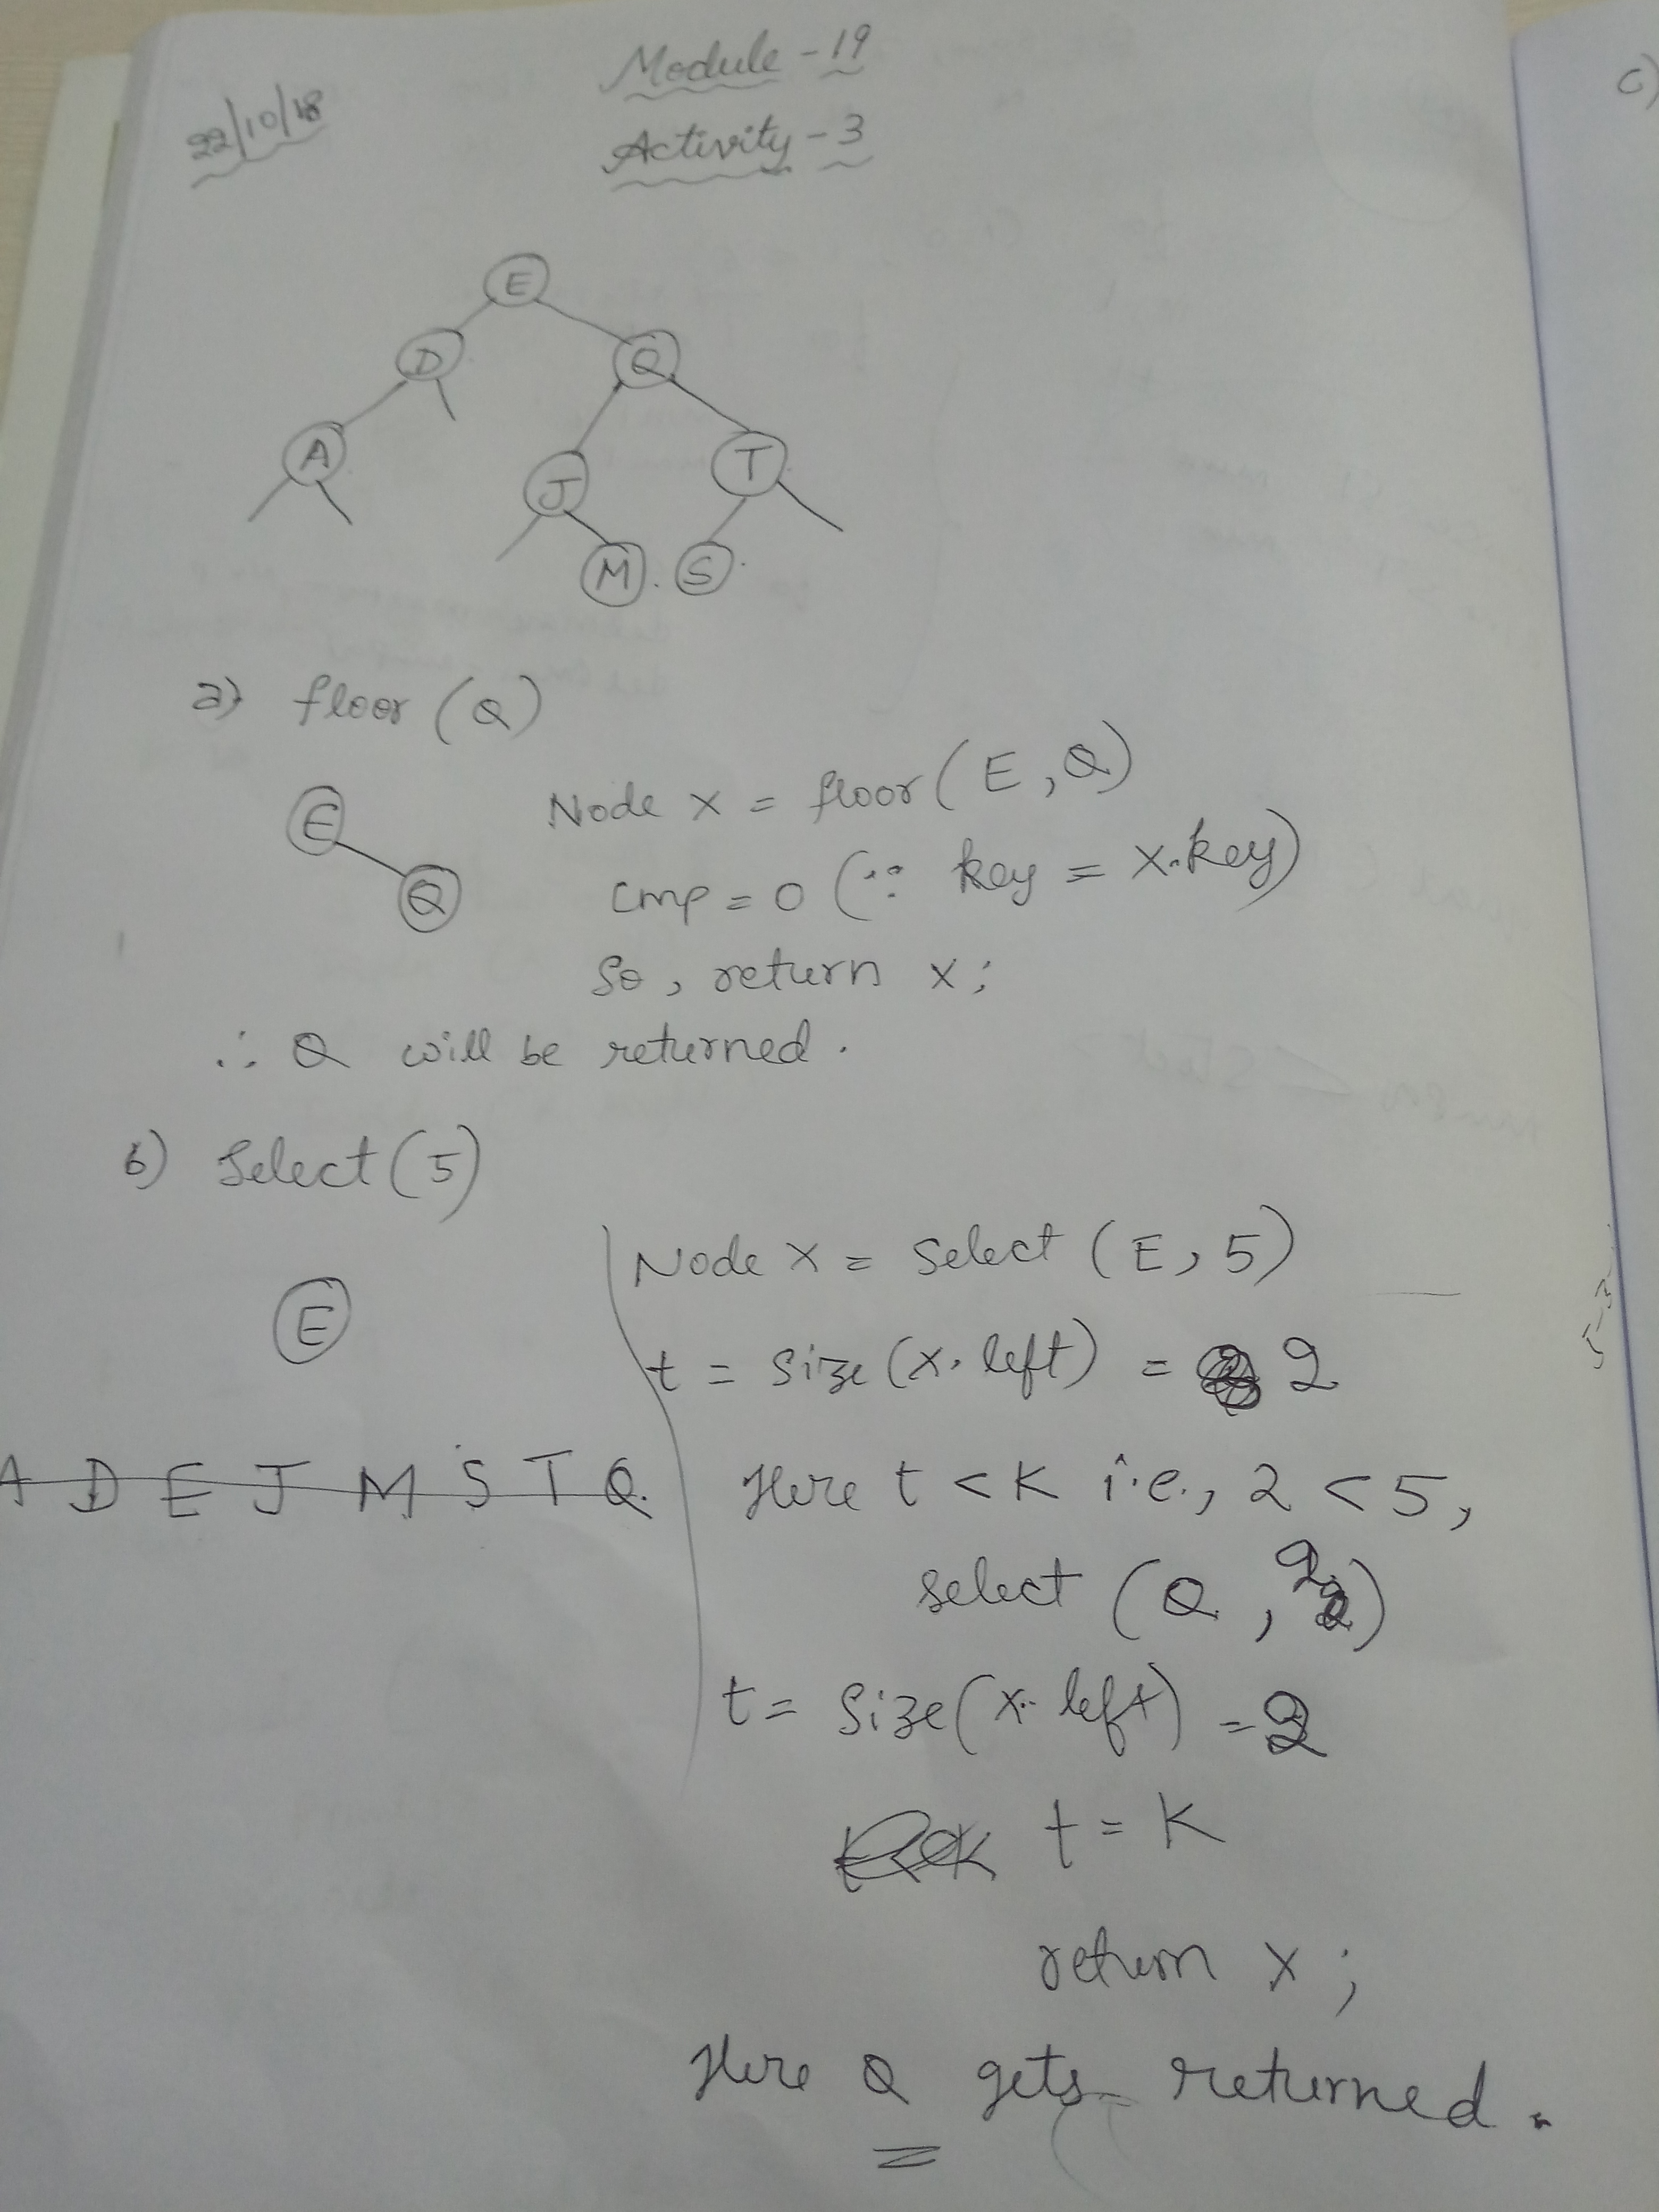 Module - 19
22/10/18
Activity - 3
E
D Q
A J T
M S
a) floor (Q)
E
Q
Node x = floor (E, Q)
Cmp = 0 (∵ key = x.key)
So, return x;
∴ Q will be returned.
b) Select (5)
E
A D E J M S T Q
Node x = Select (E, 5)
t = size (x. left) = 2
Here t < K i.e., 2 < 5,
select (Q, 2)
t = Size (x. left) = 2
t = K
return x;
Here Q gets returned.
c)
5-3